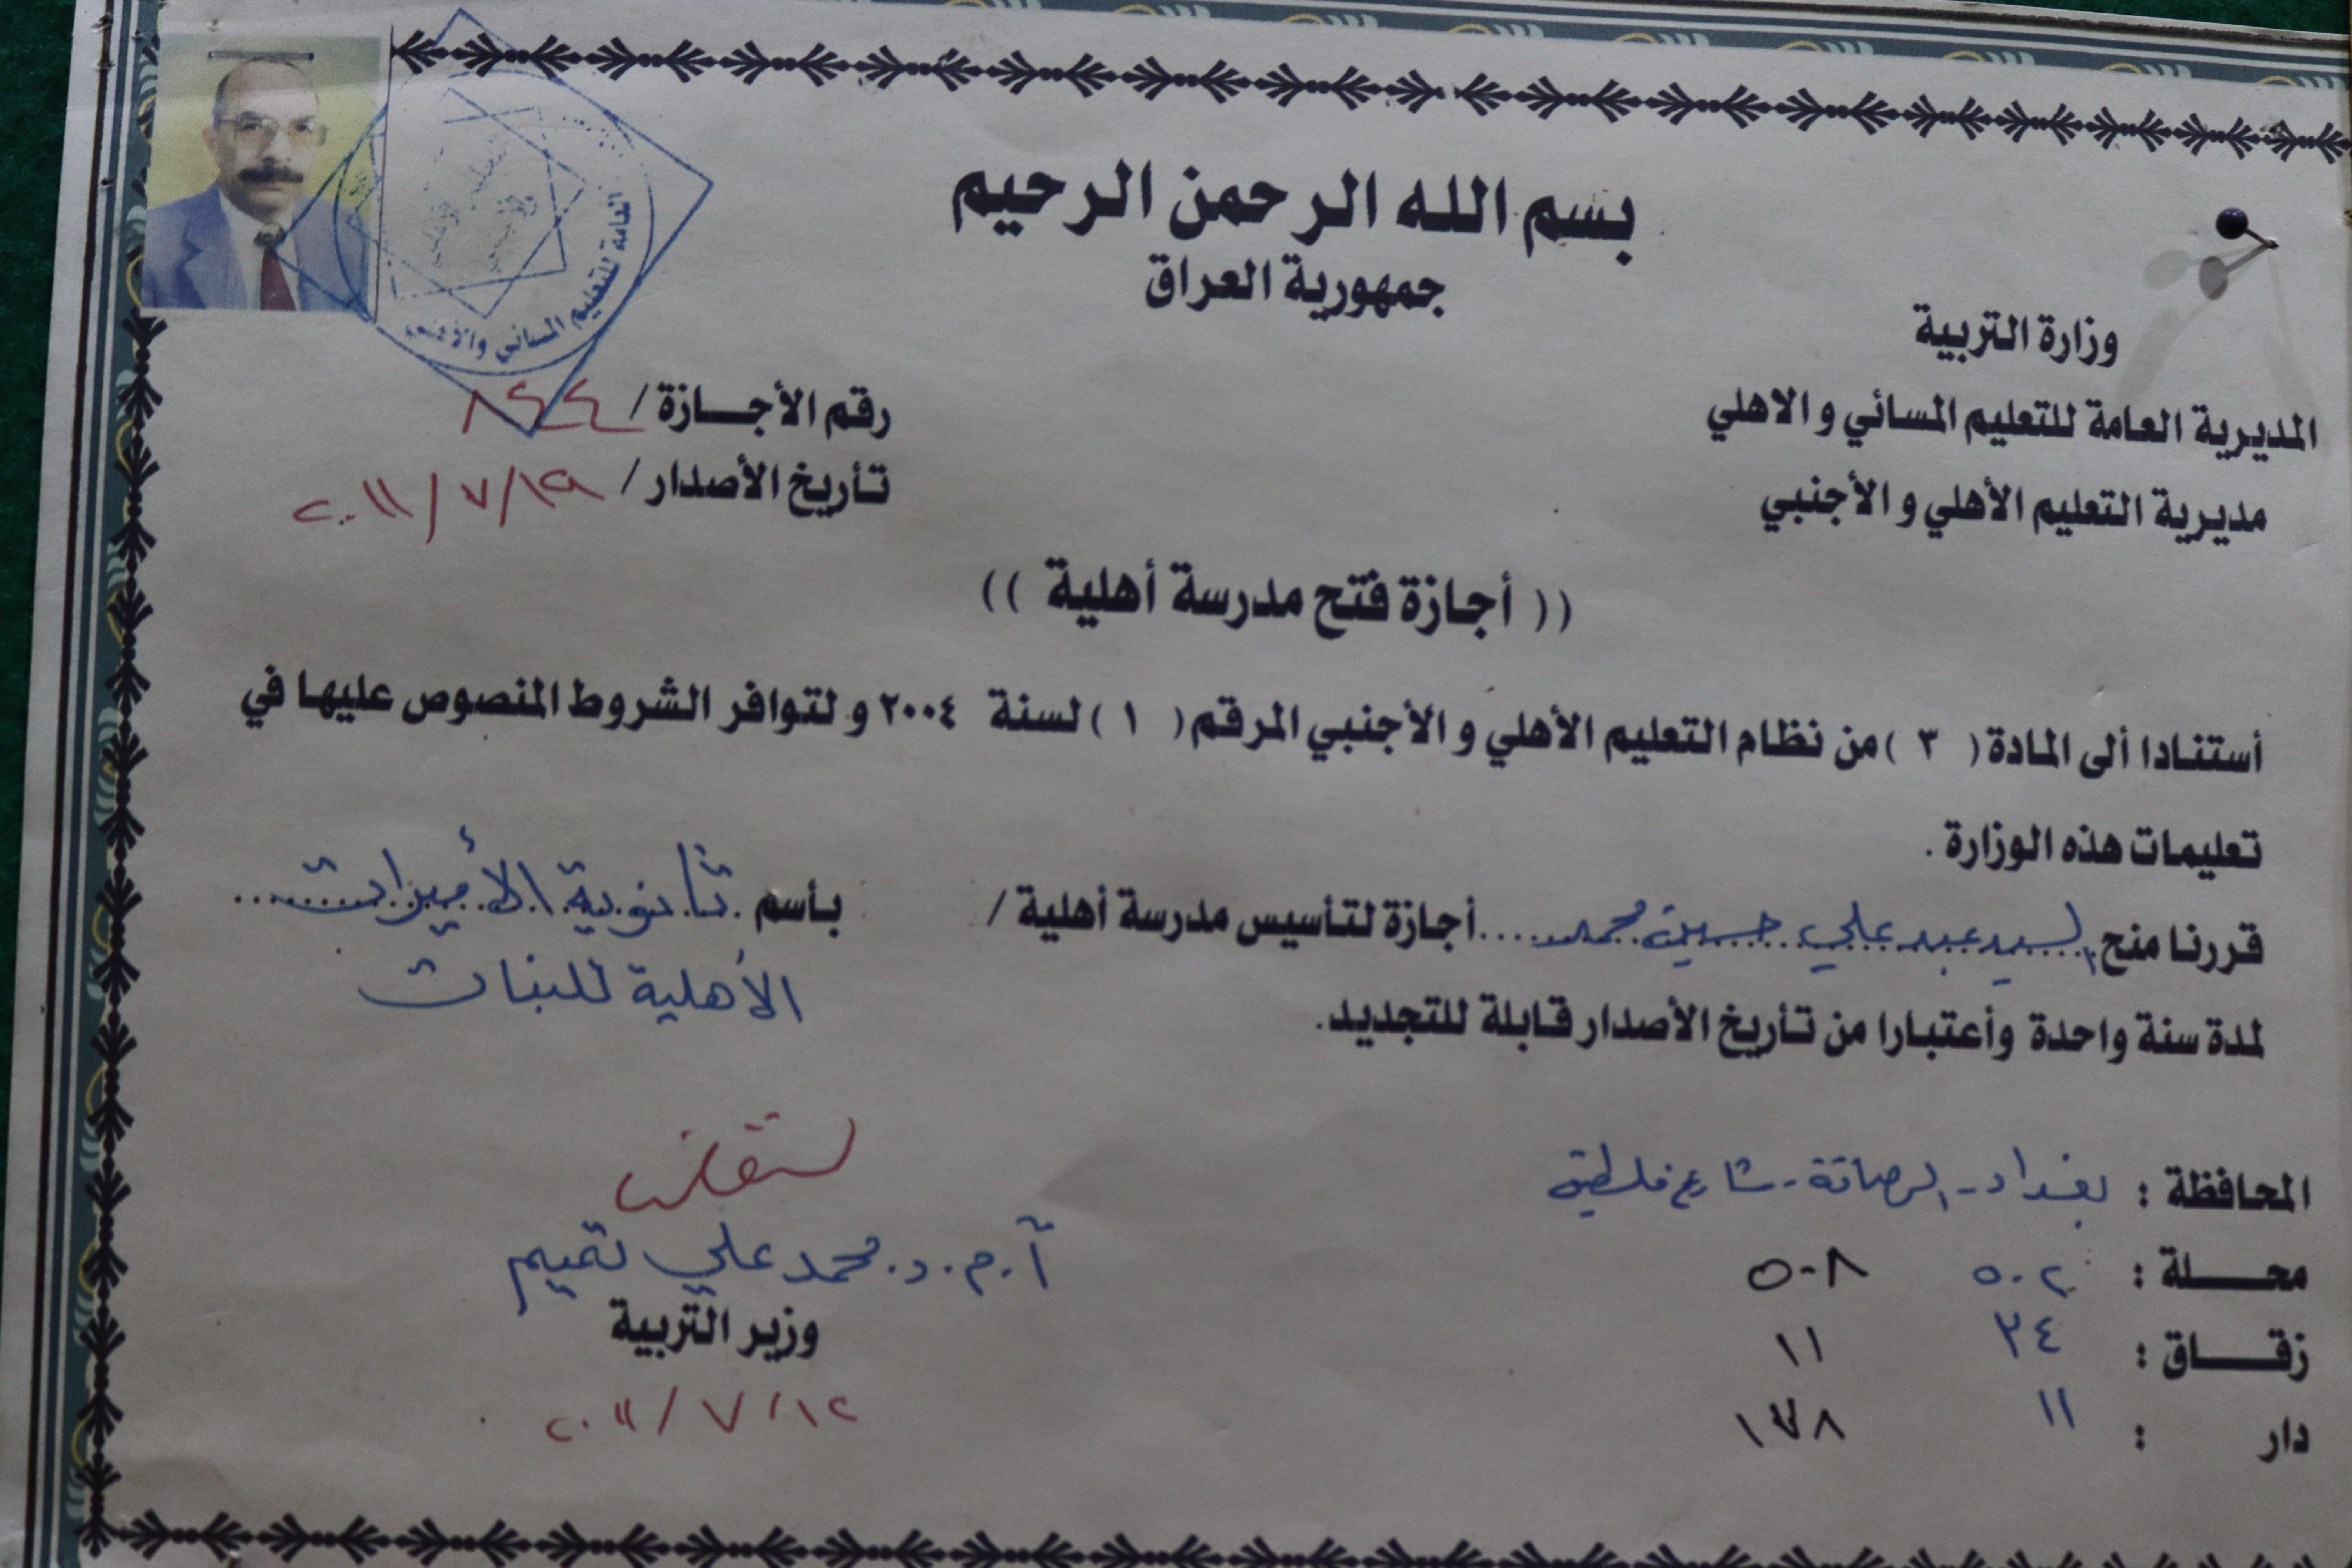 بسم الله الرحمن الرحيم
جمهورية العراق
وزارة التربية
المديرية العامة للتعليم المسائي و الاهلي
مديرية التعليم الأهلي و الأجنبي
رقم الأجـــازة / ٨٤٤
تأريخ الأصدار / ٢٠١١/٧/١٢
(( أجازة فتح مدرسة أهلية ))
أستنادا ألى المادة ( ٣ ) من نظام التعليم الأهلي و الأجنبي المرقم ( ١ ) لسنة ٢٠٠٤ و لتوافر الشروط المنصوص عليها في
تعليمات هذه الوزارة .
قررنا منح السيد عبد علي حسين محمد أجازة لتأسيس مدرسة أهلية / بأسم ثانوية الأميرات
الأهلية للبنات
لمدة سنة واحدة وأعتبارا من تأريخ الأصدار قابلة للتجديد.
المحافظة : بغداد - الرصافة - شارع فلسطين
محـــــلة : ٥٠٢ ٥٠٨
زقـــــاق : ٢٤ ١١
دار : ١١
أ.م.د. محمد علي تميم
وزير التربية
٢٠١١/٧/١٢
العامة للتعليم المسائي والأجنبي